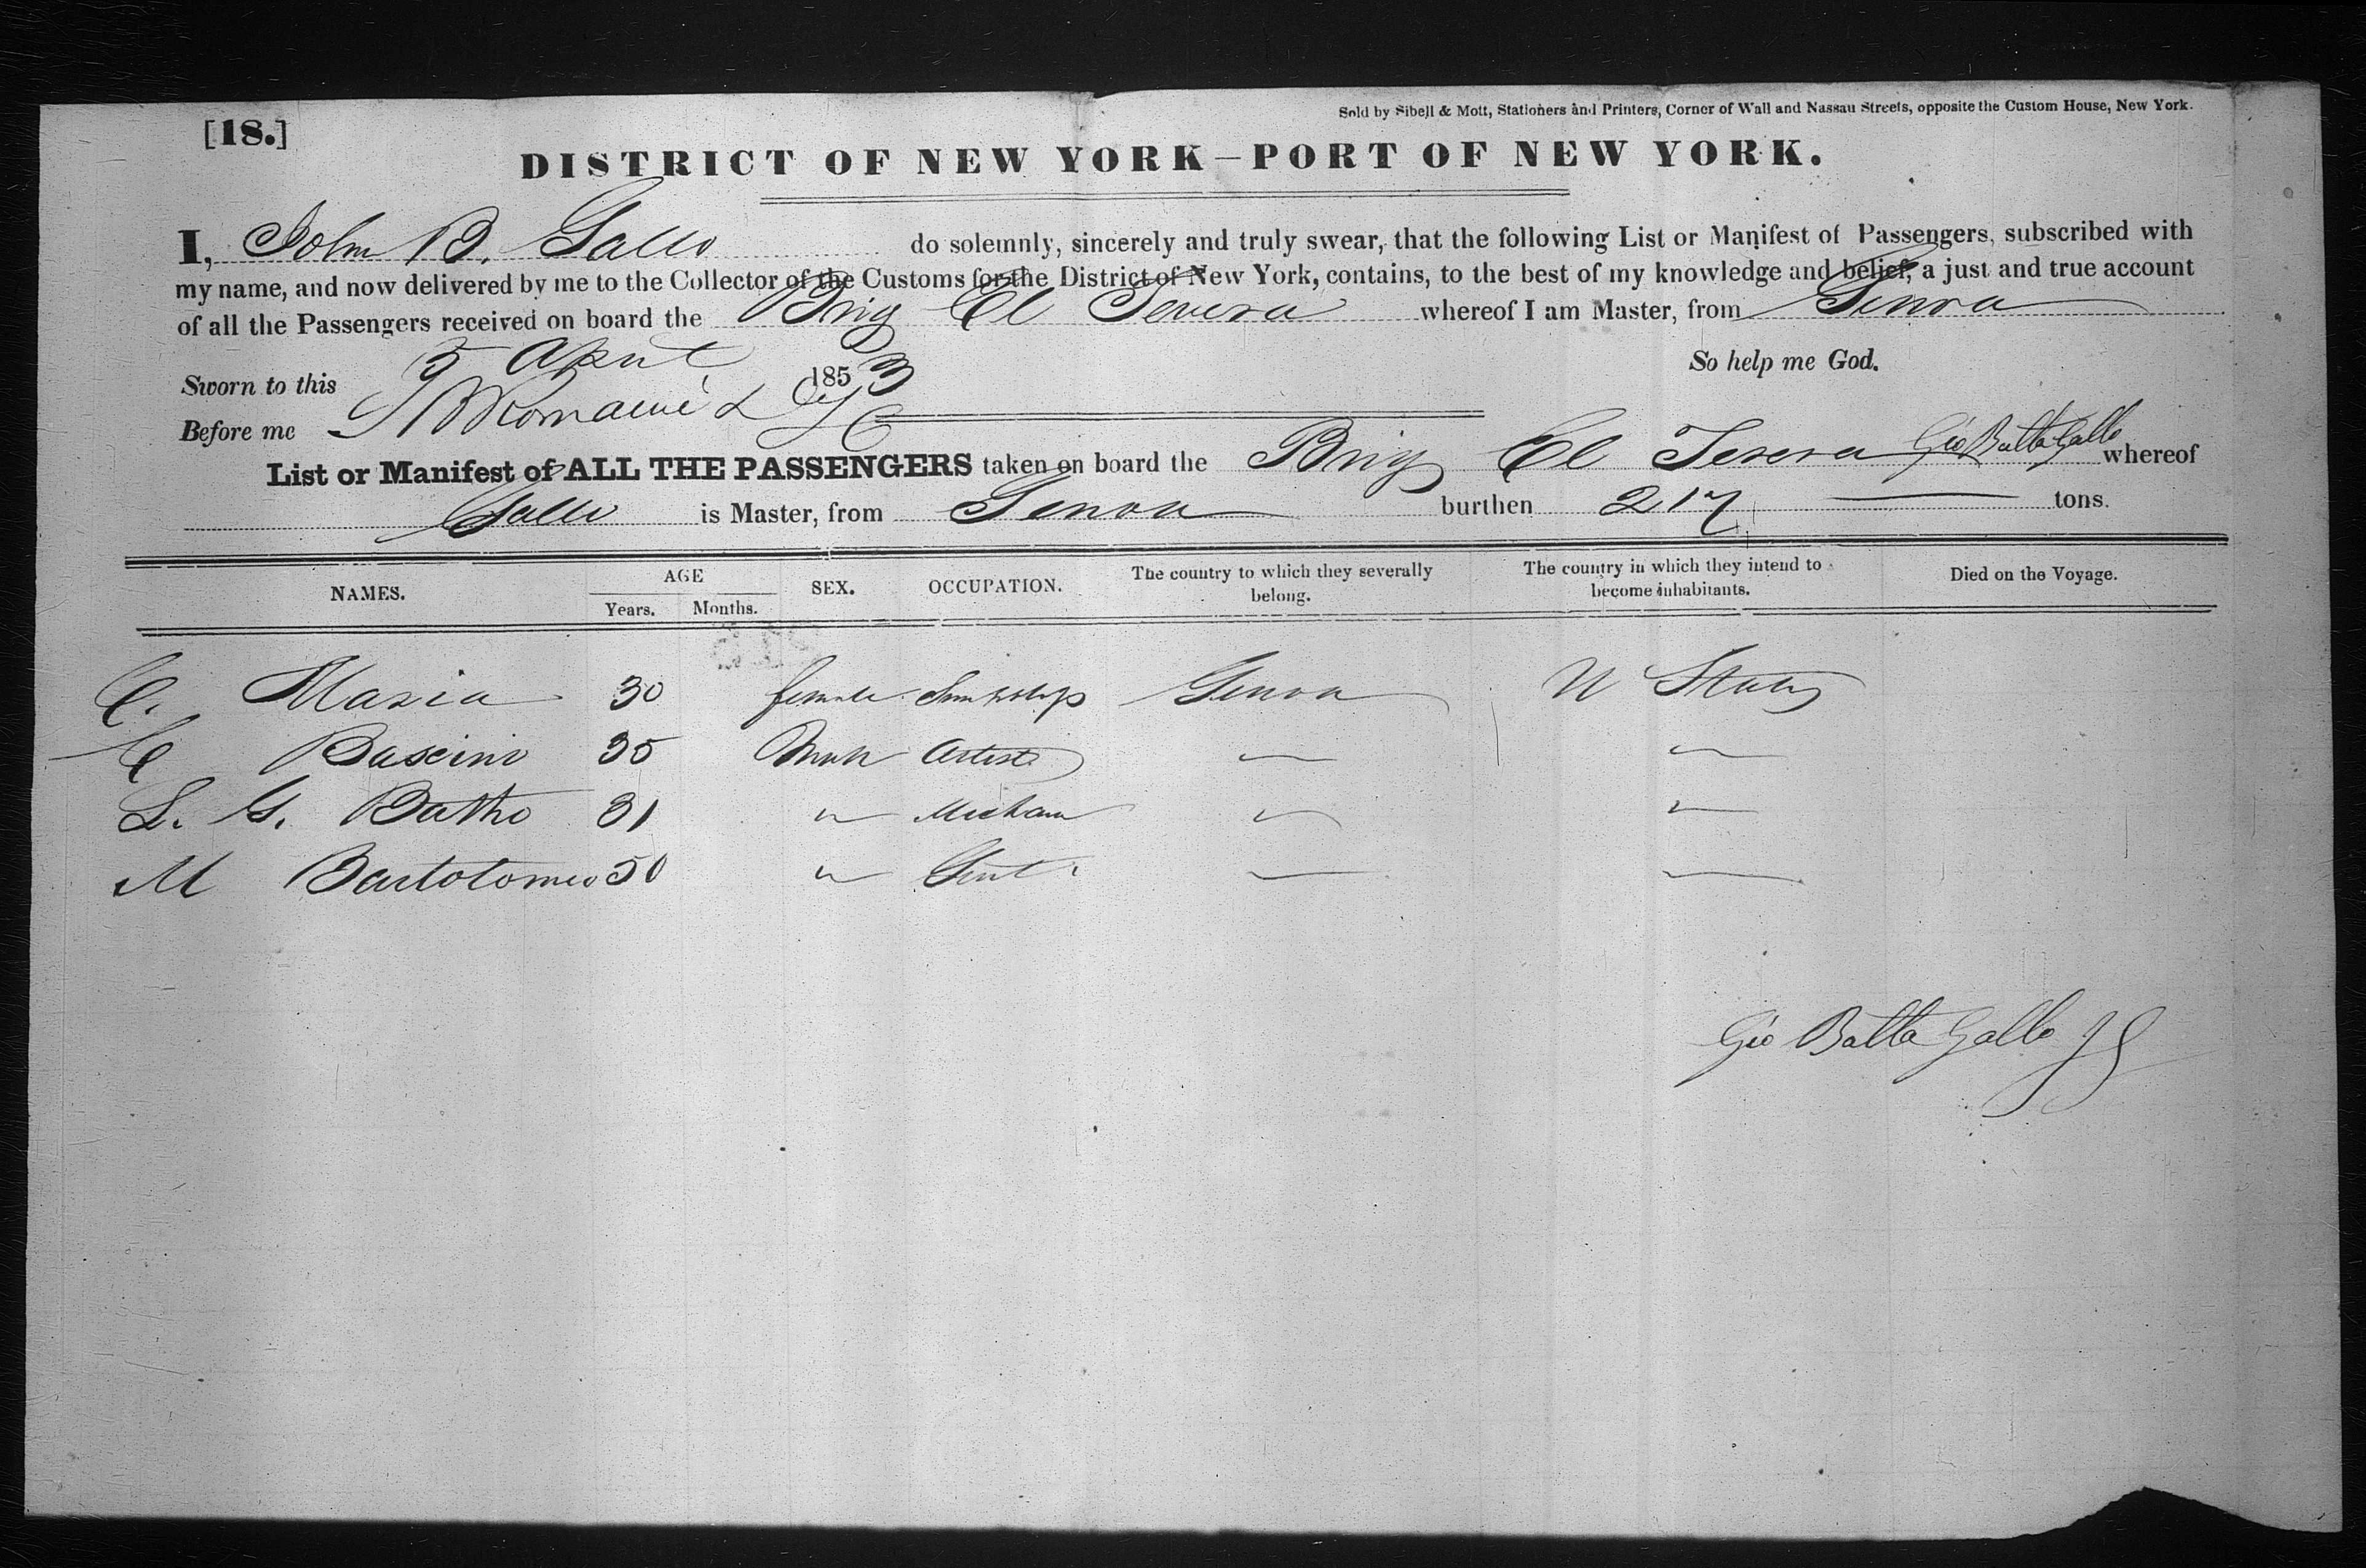 [18.]
Sold by Sibell & Mott, Stationers and Printers, Corner of Wall and Nassau Streets, opposite the Custom House, New York.
DISTRICT OF NEW YORK—PORT OF NEW YORK.
I, John B. Gallo do solemnly, sincerely and truly swear, that the following List or Manifest of Passengers, subscribed with
my name, and now delivered by me to the Collector of the Customs for the District of New York, contains, to the best of my knowledge and belief, a just and true account
of all the Passengers received on board the Brig El whereof I am Master, from Genoa
So help me God.
Sworn to this 5 April 1853
Before me
List or Manifest of ALL THE PASSENGERS taken on board the Brig El Gio Batta Gallo whereof
Gallo is Master, from Genoa burthen 217 tons.
NAMES. AGE SEX. OCCUPATION. The country to which they severally belong. The country in which they intend to become inhabitants. Died on the Voyage.
Years. Months.
C. Maria 30 female Genoa U States
C 35 Male Artist
L. G. 31 "
M Bartolomeo 50 " Gent
Gio Batta Gallo